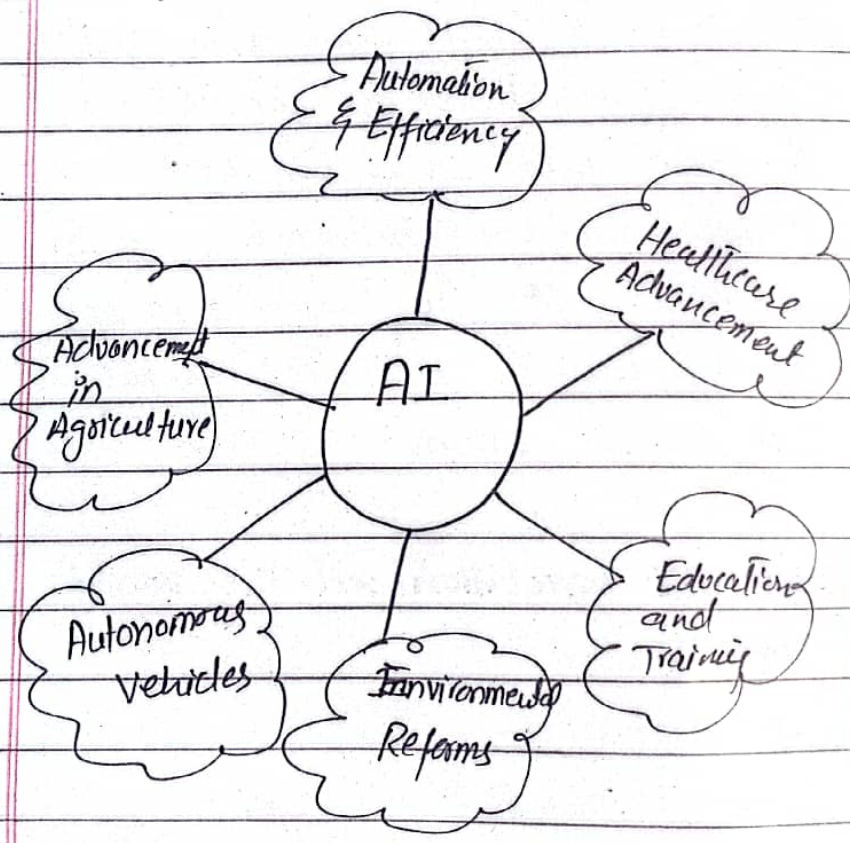 Automation
& Efficiency
Healthcare
Advancement
AI
Advancement
in
Agriculture
Education
and
Training
Autonomous
Vehicles
Environmental
Reforms